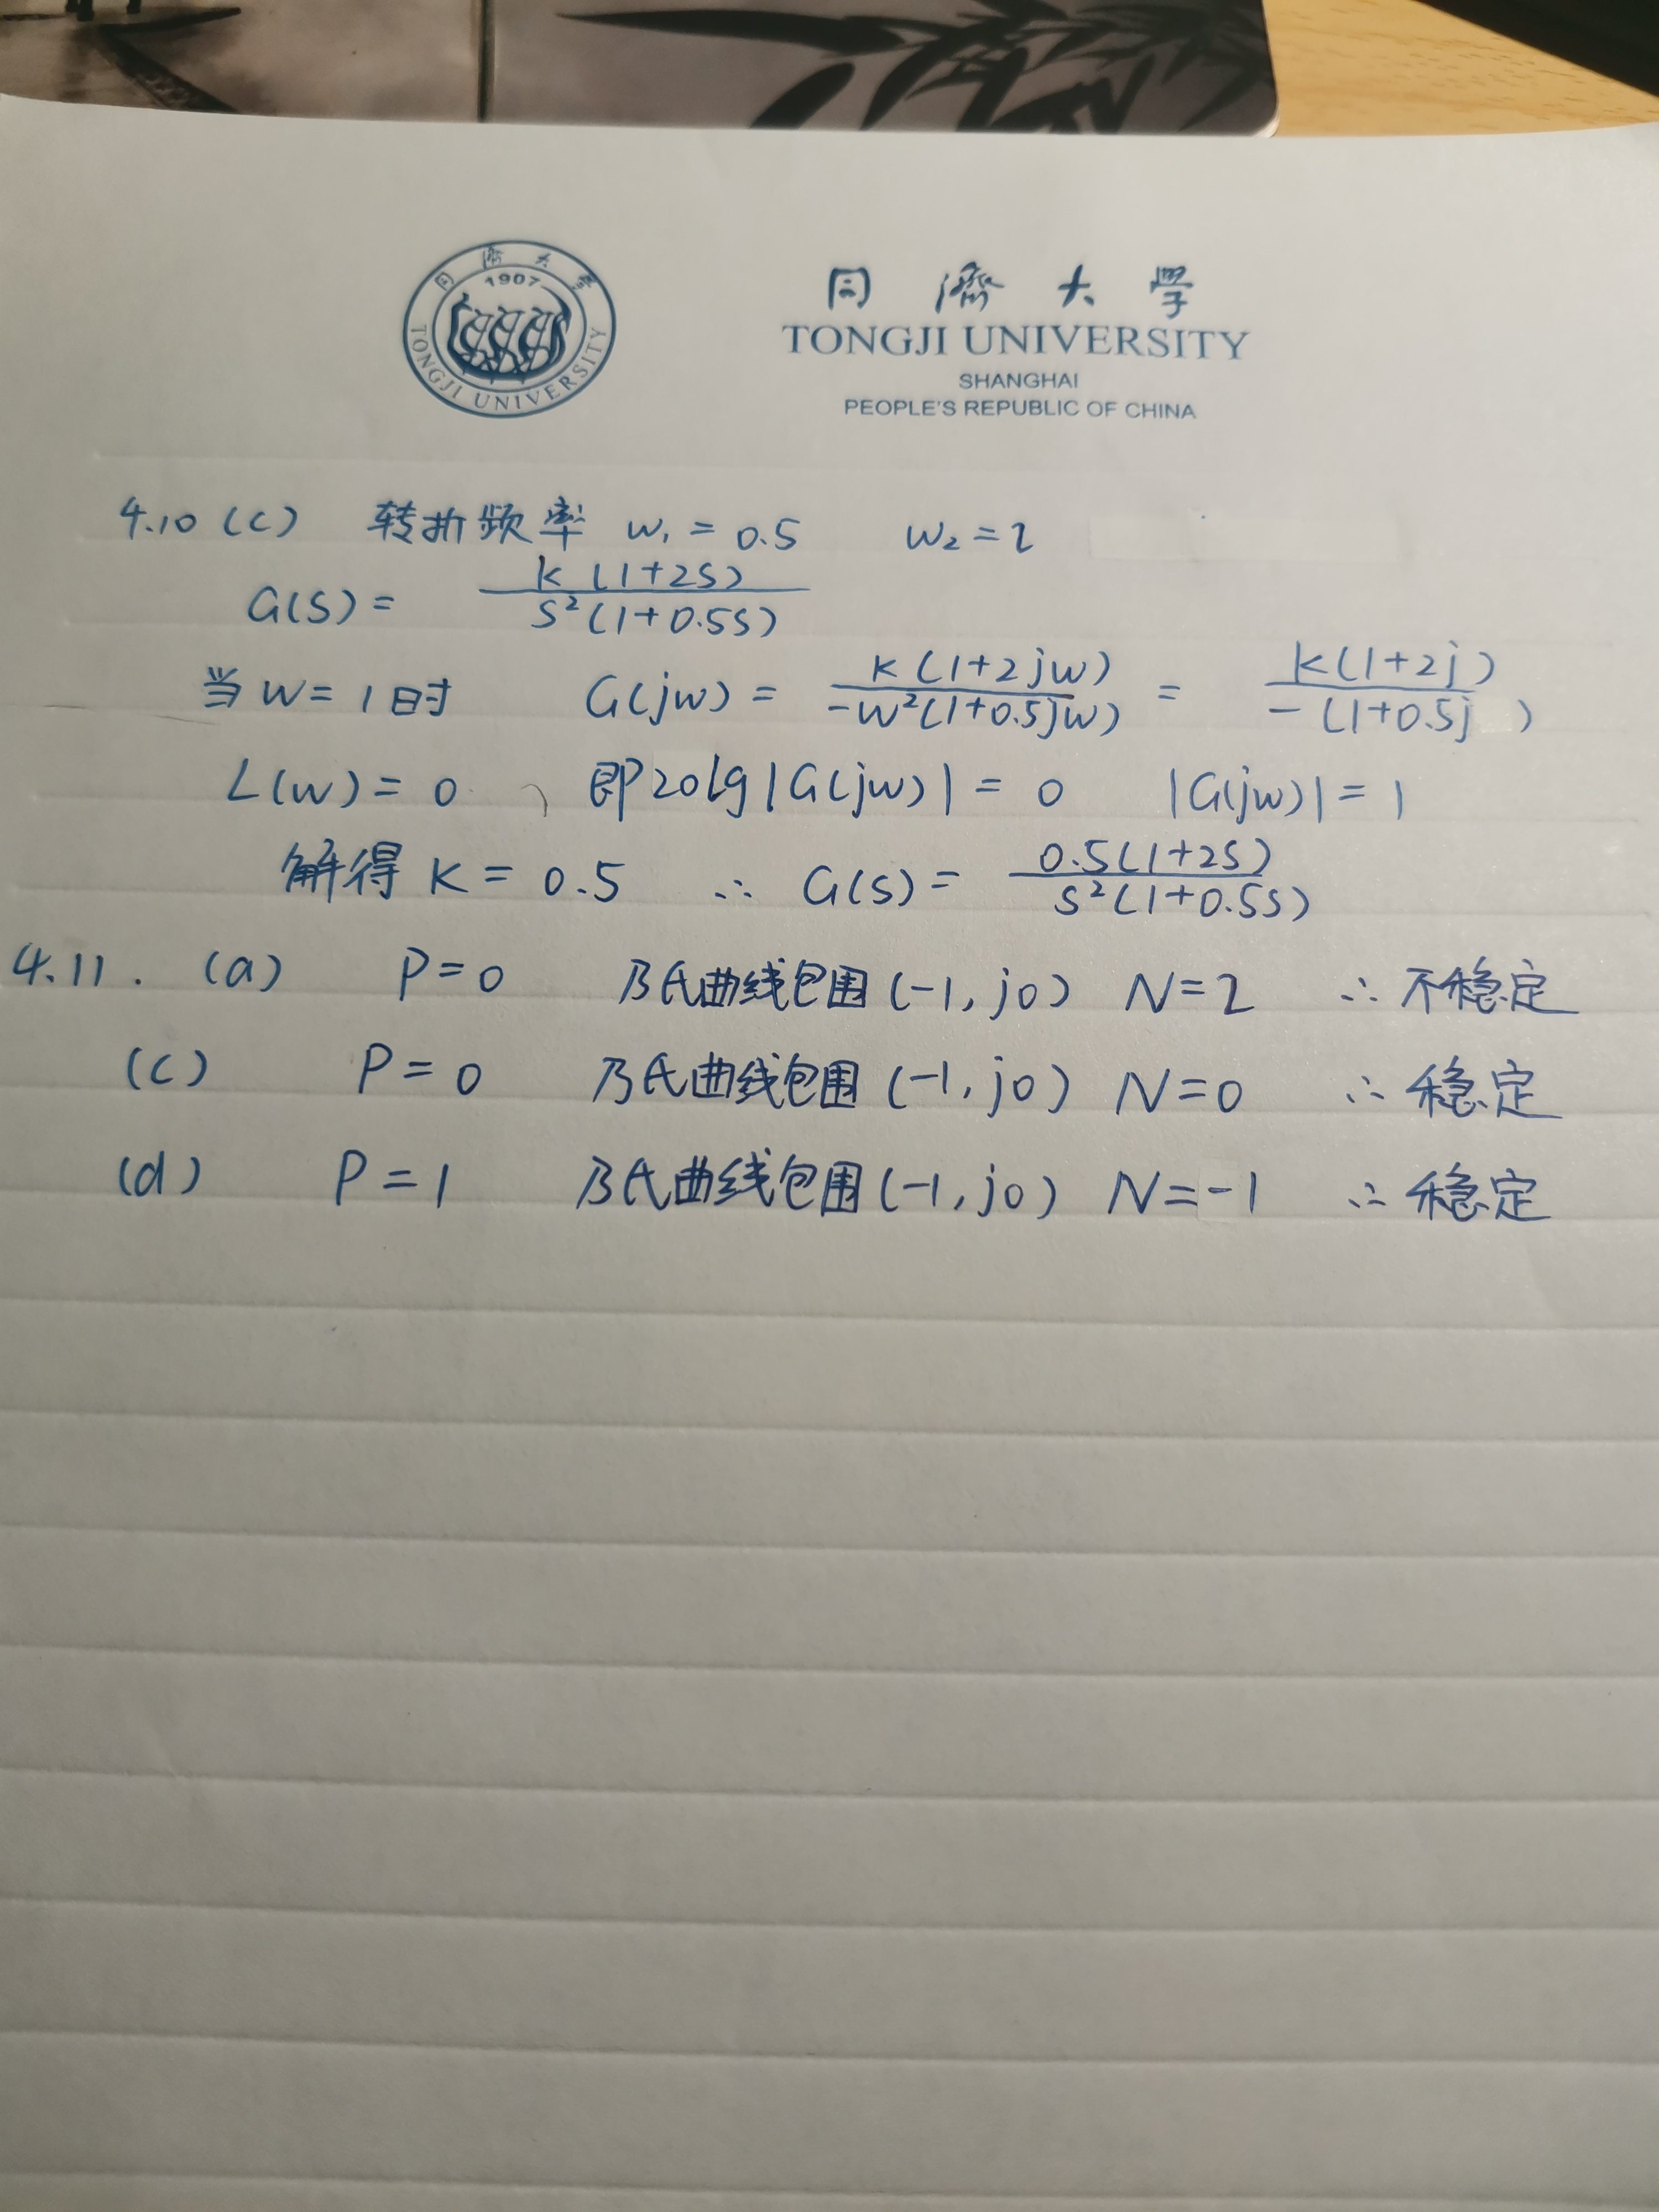 同濟大學
1907
TONGJI UNIVERSITY
同濟大學
TONGJI UNIVERSITY
SHANGHAI
PEOPLE'S REPUBLIC OF CHINA
4.10 (c) 转折频率 w₁ = 0.5 w₂ = 2
G(s) = K(1+2s) / s²(1+0.5s)
当 w = 1时 G(jw) = K(1+2jw) / -w²(1+0.5jw) = K(1+2j) / -(1+0.5j )
L(w) = 0 、 即20lg|G(jw)| = 0 |G(jw)| = 1
解得 K = 0.5 ∴ G(s) = 0.5(1+2s) / s²(1+0.5s)
4.11. (a) P=0 乃氏曲线包围(-1, j0) N=2 ∴ 不稳定
(c) P=0 乃氏曲线包围(-1, j0) N=0 ∴ 稳定
(d) P=1 乃氏曲线包围(-1, j0) N=-1 ∴ 稳定